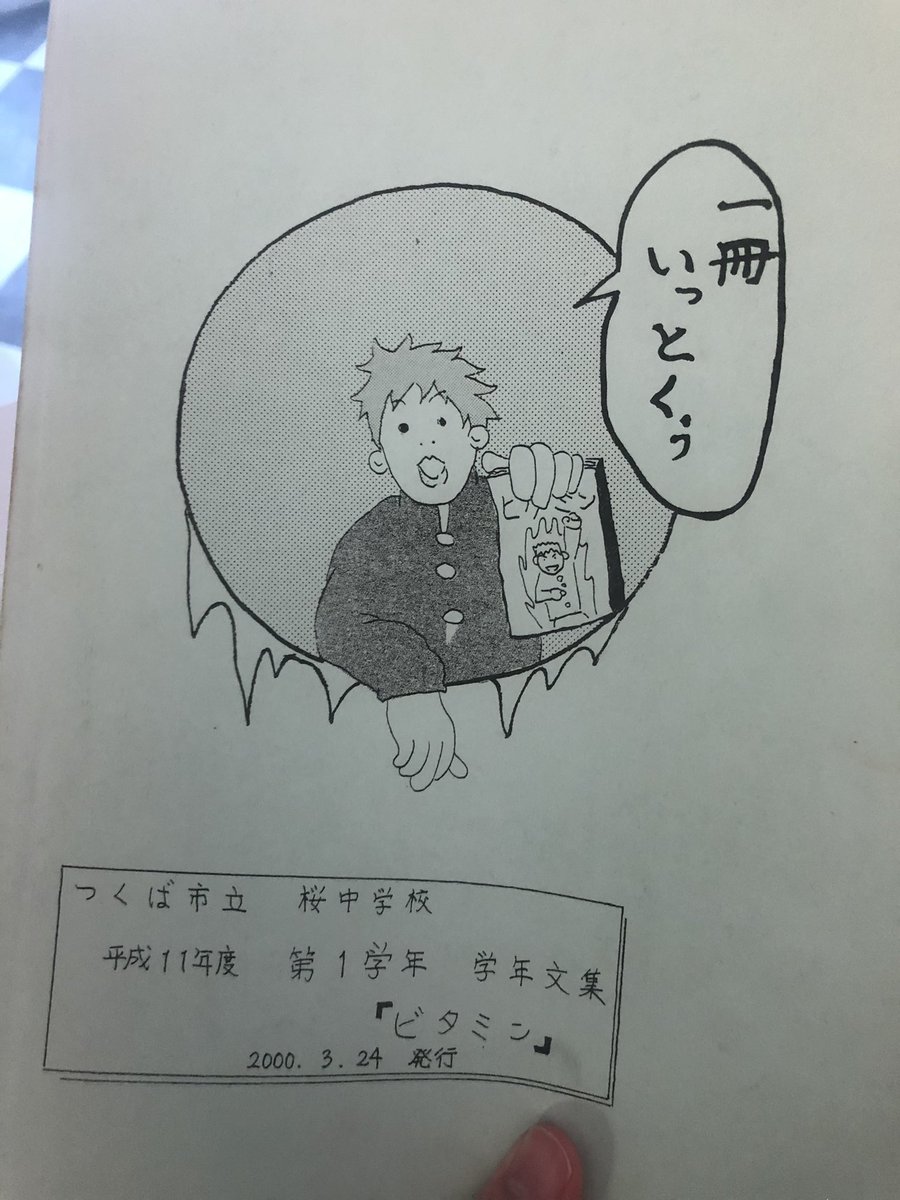 一冊
いっとくぅ
ビタミン
つくば市立 桜中学校
平成11年度 第1学年 学年文集
『ビタミン』
2000.3.24 発行